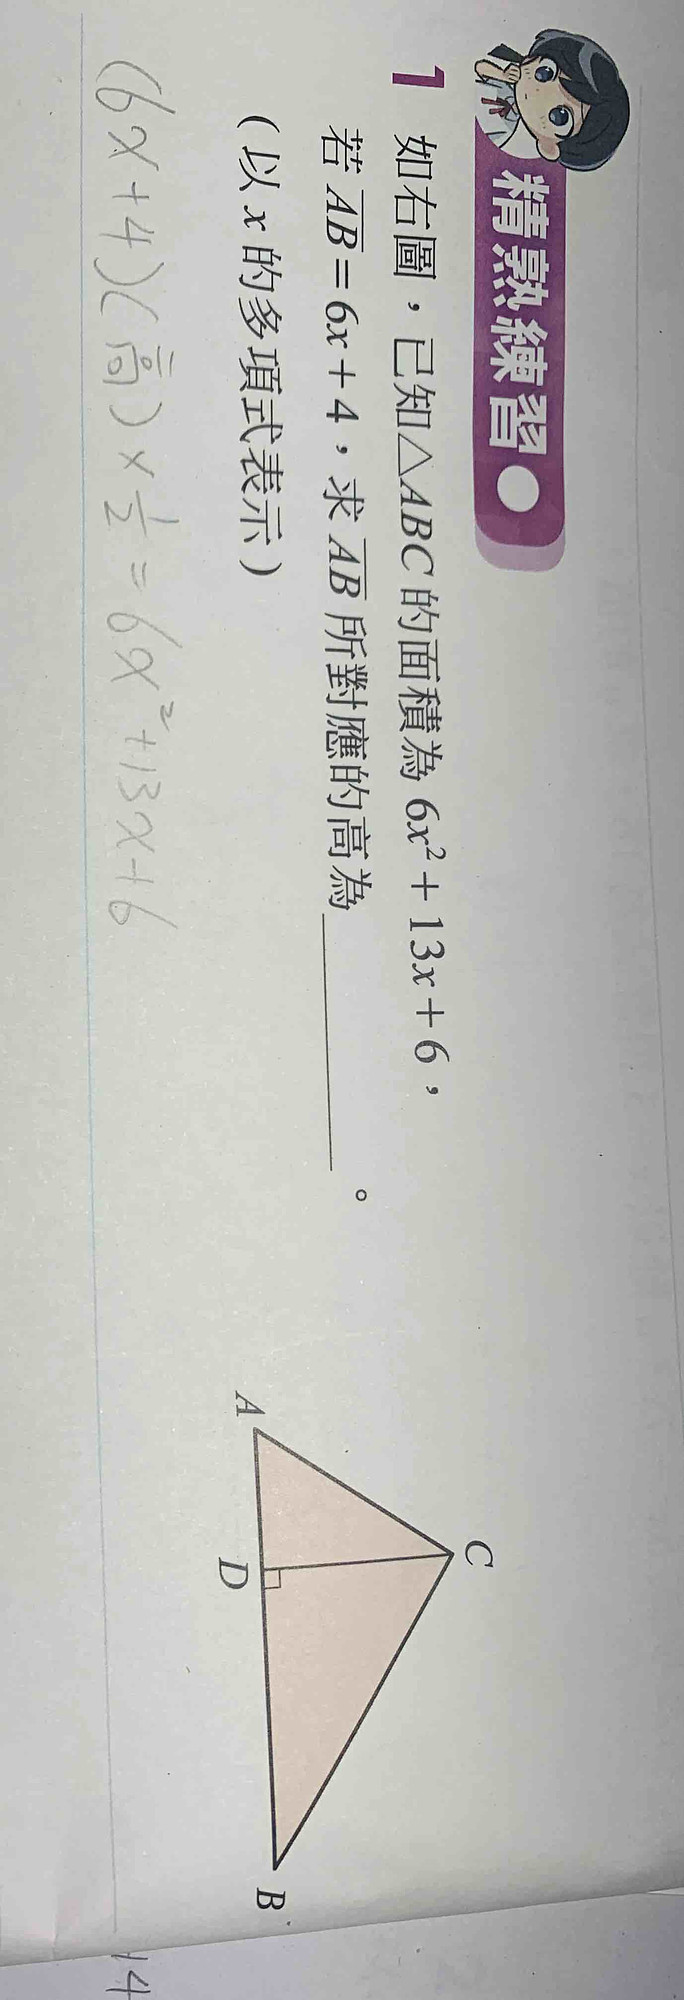 精熟練習
1 如右圖，已知△ABC的面積為6x²+13x+6，
若A̅B̅=6x+4，求A̅B̅所對應的高為＿＿＿＿＿。
（以x的多項式表示）
(6x+4)(高)×½=6x²+13x+6
C
A
D
B
14